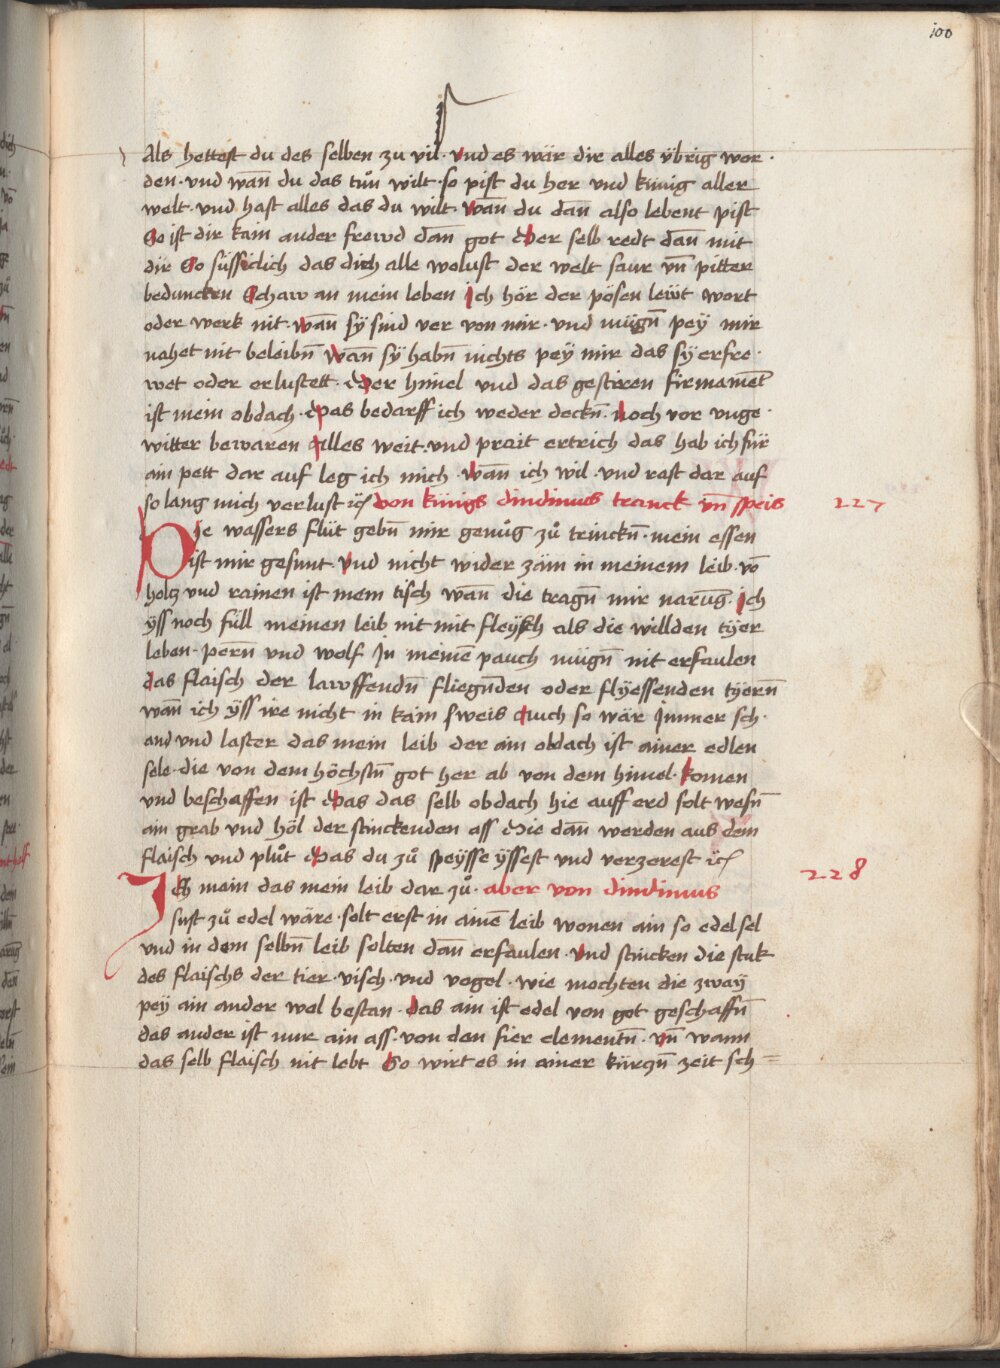 100
Als hettest du des selben zu vil · und es wär dir alles übrig wor·
den · und wan̄ du das tůn wilt · so pist du her und künig aller
welt · und hast alles das du wilt · wan̄ du dan̄ also lebent pist
So ist dir kain ander frewd dan̄ got der selb redt dan̄ mit
dir So süssiclich das dich alle wolust der welt saur vn̄ pitter
beduncken Schaw an mein leben ich hör der pösen lewt wort
oder werk nit · wan̄ sÿ sind ver von mir · und mügn̄ peÿ mir
nahet nit beleibn̄ wan̄ sÿ habn̄ nichts peÿ mir das sÿ erfre·
wet oder erlustett · Der himel und das gestiren firmamēt
ist mein obdach · das bedarff ich weder deckn̄ · noch vor unge·
witter bewaren alles weit · und prait ertrich das hab ich für
ain pett dar auf leg ich mich · wan̄ ich wil · und rast dar auf
so lang mich verlust ic̄ von künigs dindimus tranck vn̄ speis
227
Die wassers flüt gebn̄ mir genůg zů trinckn̄ · mein essen
ist mir gesunt · und nicht wider zäm in meinem leib · vō
holtz und rainen ist mein tisch wan̄ die tragn̄ mir narūg · ich
ÿss noch füll meinen leib nit mit fleÿsch als die willden tÿer
leben · pern̄ und wolf In meinē pauch mügn̄ nit erfaulen
das flaisch der lawffendn̄ fliegn̄den oder flÿessenden tÿern̄
wan̄ ich ÿss ire nicht in kain sweis auch so wär ÿmmer sch·
and und laster das mein leib der ain obdach ist ainer edlen
sele · die von dem höchstn̄ got her ab von dem himel · komen
und beschaffen ist das das selb obdach hie auff erd solt wesn̄
ain grab und höl der stinckenden ass die dan̄ werden aus dem
flaisch und plůt das du zů speÿsse ÿssest und verzerest ic̄
228
Ich mein das mein leib dar zů · aber von dindimus
sust zů edel wäre · solt erst in ainē leib wonen ain so edel sel
und in dem selbn̄ leib solten dan̄ erfaulen · und stincken die stuk
des flaischs der tier · visch · und vogel · wie mochten die zwaÿ
peÿ ain ander wol bestan · das ain ist edel von got geschaffn̄
das ander ist nur ain ass · von den fier elementn̄ · vn̄ wann
das selb flaisch nit lebt So wirt es in ainer kürczn̄ zeit sch=